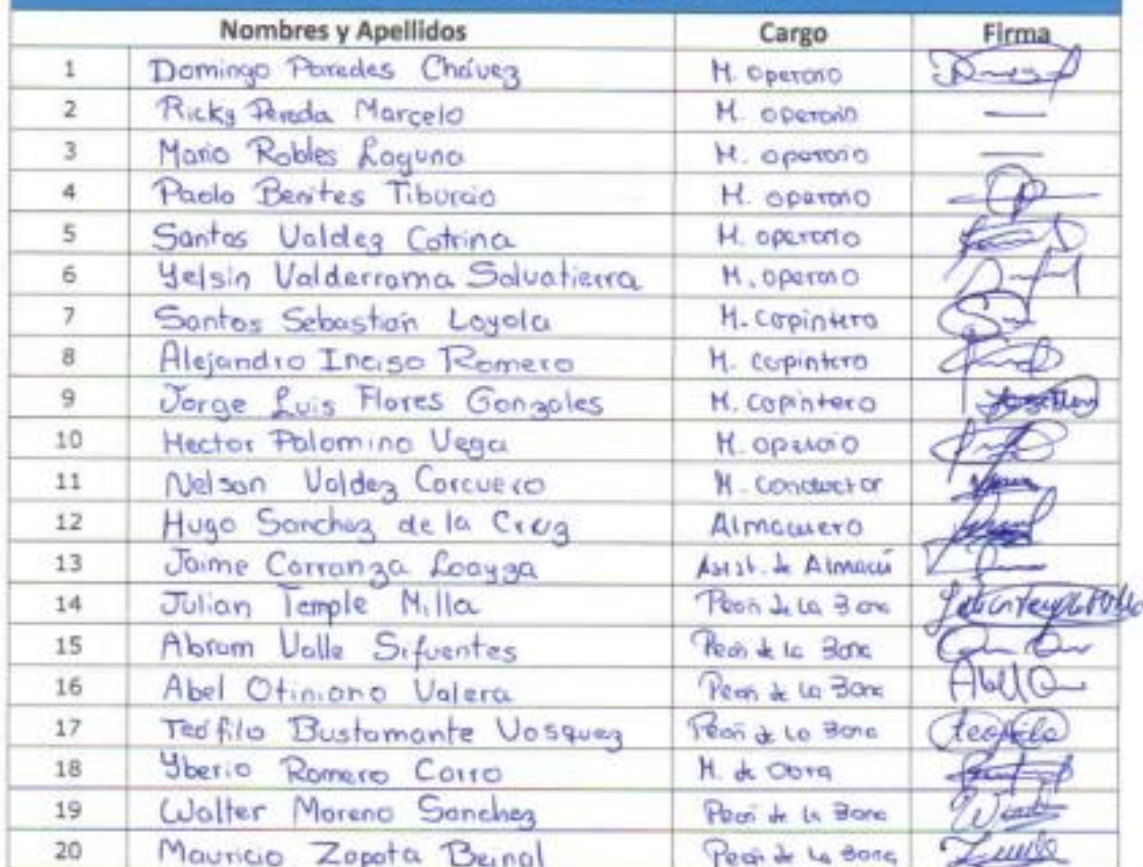 Nombres y Apellidos Cargo Firma
1 Domingo Paredes Chávez M. operario
2 Ricky Pereda Marcelo M. operario
3 Mario Robles Laguna M. operario
4 Paolo Benites Tiburcio M. operario
5 Santos Valdez Cotrina M. operario
6 Yelsin Valderrama Salvatierra M. operario
7 Santos Sebastián Loyola M. Carpintero
8 Alejandro Inciso Romero M. Carpintero
9 Jorge Luis Flores Gonzales M. Carpintero
10 Hector Palomino Vega M. operario
11 Nelson Valdez Corcuera M. Conductor
12 Hugo Sanchez de la Cruz Almacenero
13 Jaime Carranza Loayza Asist. de Almacén
14 Julian Temple Milla Peón de La Zona
15 Abram Valle Sifuentes Peón de la Zona
16 Abel Otiniano Valera Peón de La Zona
17 Teófilo Bustamante Vasquez Peón de La Zona Teofilo
18 Yberio Romero Corro M. de Obra
19 Walter Moreno Sanchez Peón de la Zona
20 Mauricio Zapata Bernal Peón de La Zona